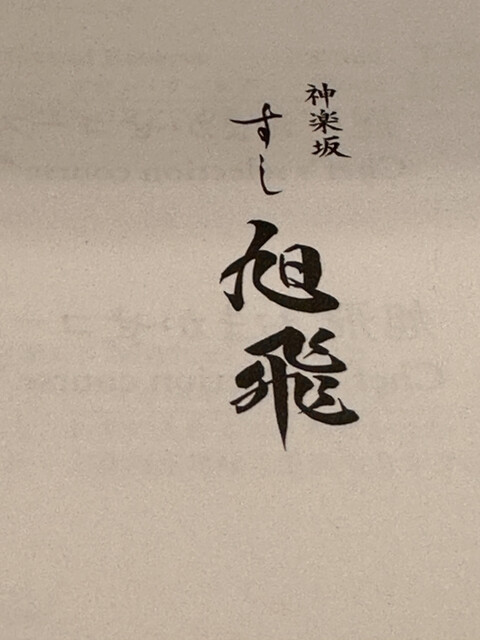 神楽坂
すし
旭飛